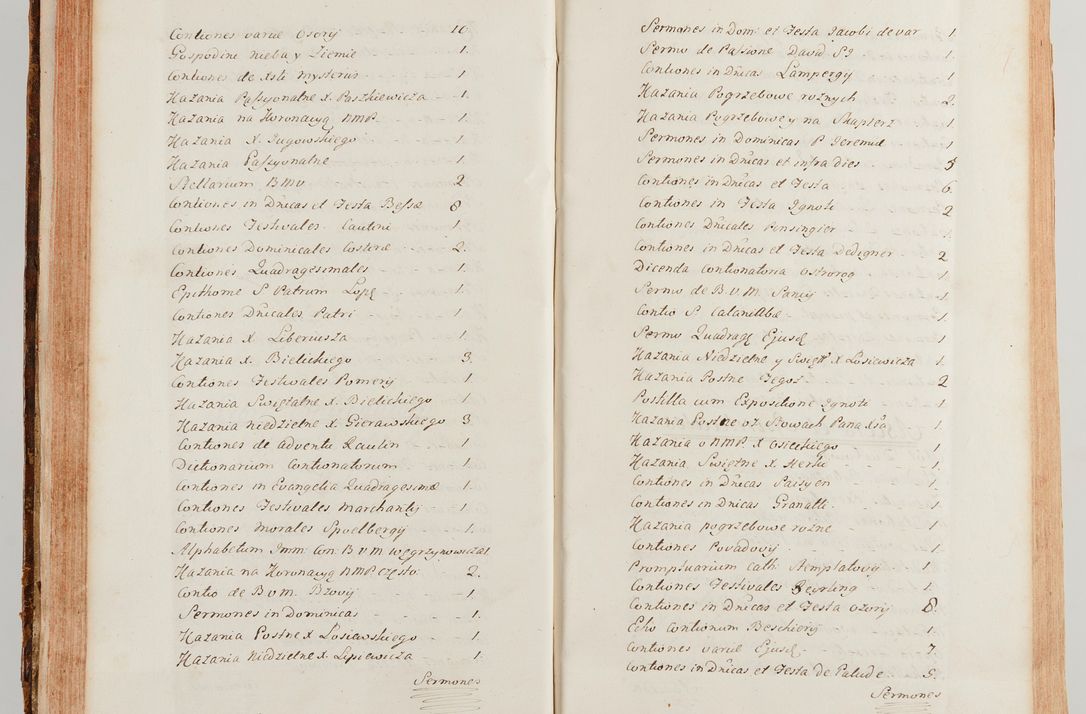 Contiones variæ Osorÿ 16.
Gospodine nieba y Ziemie 1.
Contiones de Xsti mysteriis 1.
Kazania Passyonalne x. Paszkiewicza 1.
Kazania na Koronacyą NMP. 1.
Kazania X. Jugowskiego 1.
Kazania Passyonalne 1.
Stellarium BMV 2
Contiones in Dnicas et Festa Bessæ 8
Contiones Festivales Cautini 1.
Contiones Dominicales Costeræ 2.
Contiones Quadragesimales 1.
Epithome S Patrum Lopę 1.
Contiones Dnicales Patri 1.
Kazania X Liberiusza 1.
Kazania X. Bielickiego 3.
Contiones Festivales Pomerÿ 1.
Kazania Swiętalne X. Bielickiego 1
Kazania niedzielne X. Gierawskiego 3
Contiones de adventu Raulin 1.
Dictionarium Contionatorum 1.
Contiones in Evangelia Quadragesimæ 1.
Contiones Festivales Marchantÿ 1.
Contiones Morales Spoelbergÿ 1.
Alphabetum Imm: Con B V M Węgrzynowicza 1.
Kazania na Koronacyą NMP. Często: 2.
Contio de B V M. Bzovÿ 1.
Sermones in Dominicas 1.
Kazania Postne X Losiewskiego 1.
Kazania Niedzielne X. Lipiewicza 1.
Sermones
Sermones in Dom: et Festa Jacobi de var 1.
Sermo de Passione David SJ 1.
Contiones in Dnicas Lampergÿ 1.
Kazania Pogrzebowe rożnych 2.
Kazania Pogrzebowe y na Skaplerz 1.
Sermones in Dominicas P Jeremiæ 1
Sermones in Dnicas et infra dies 5
Contiones in Dnicas et Festa 6.
Contiones in Festa Ignoti 2
Contiones Dnicales Pensingier 1.
Contiones in Dnicas et Festa Dedigner 2
Dicenda Contionatoria Ostrorog 1.
Sermo de B. V. M. Pancÿ 1.
Contio S Catanilibæ 1
Sermo Quadrag Ejusd 1
Kazania Niedzielne y Swięt X Losiewicza 1.
Kazania Postne Tegoż 2
Postilla cum Expositione Ignoti 1
Kazania Postne o 7. Słowach Pana Xsa 1.
Kazania o NMP X Osieckiego 1
Kazania Swiętne X Herki 1.
Contiones in Dnicas Paisyen 1.
Contiones in Dnicas Granatti 1.
Kazania pogrzebowe rożne 1
Contiones Povadovÿ 1.
Promptuarium Cath: Stemplatovÿ 1
Contiones Festivales Beyrling 1
Contiones in Dnicas et Festa Ozorÿ 8.
Echo Contionum Beschierÿ 1.
Contiones variæ Ejusd 7.
Contiones in Dnicas et Festa de Palude 5.
Sermones